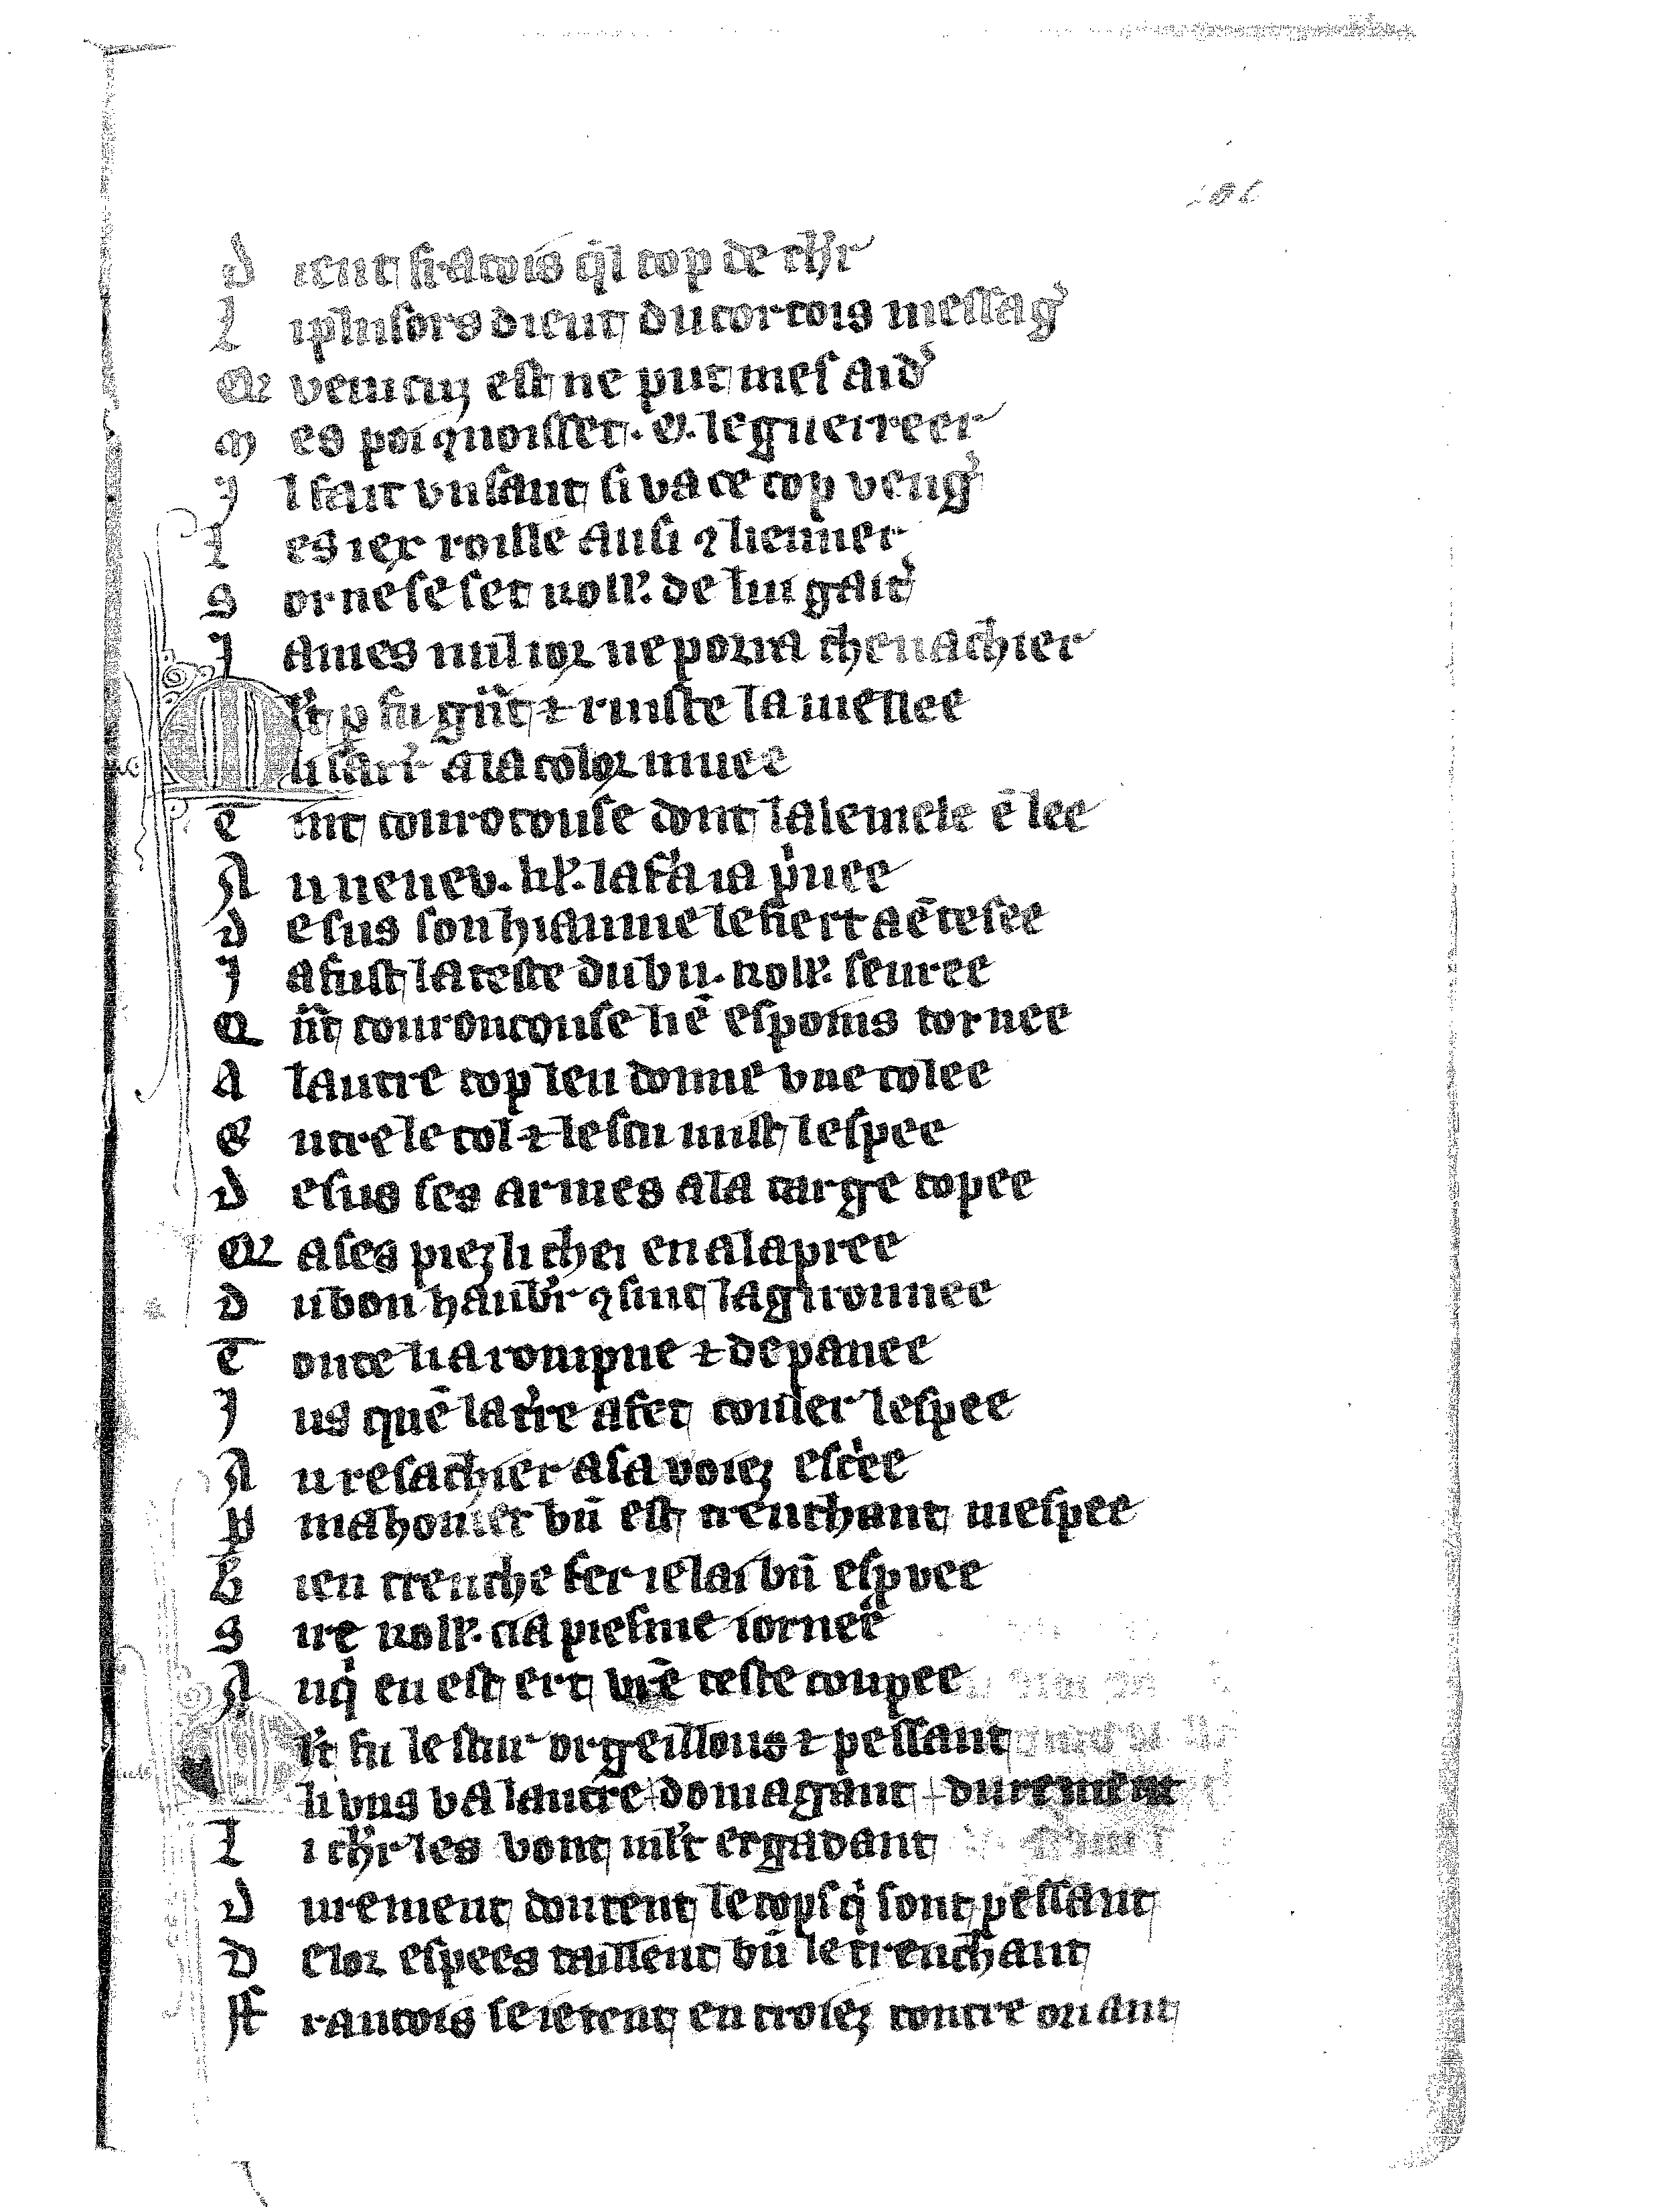 D ient francois q̇l cop de chl'r
L i plusors dient du cortois messag'
Q venicuz est ne put mes aid'
M es poi 9noisset .G. le guerreer
I l fait un saut si va ce cop veng'
L es iex roille ausi 9 liemier
S or ne se set noll'. de lui gait'
J ames nul ior ne porra cheuachier
M l't p fu g̃nt et iuiste la mellee
a la color muee
T int courocouse dont lalemele ẽ lee
A u neueu .kl'. la fa ia p'uee
D esus son hiaume le fiert a ẽtesee
J a fust la teste du bu .noll'. seuree
Q ñt couroucouse li ẽ es poins tornee
A lautre cop leu donne vne colee
E ntre le col et lescu mist lespee
D esus ses armes a la targe copee
Q a ses piez li chei en a la pree
D u bon haub'r 9suit la gironnee
T oute li a rompue et depanee
J us quẽ la t're a fet couler lespee
A u resachier a sa voiez esc'ee
P mahomet bñ est trenchant mespee
B ien trenche fer ie lai bñ esprvee
S ire noll'. cia piesme iornee
A nq̇ en est ert vr̃e teste coupee
M l't fu lestur orgeillous et pessant
li vns va lautre domagant durement
L i chl'r les vont ml't ergardant
D urement doutent le cops q̇ sont pessant
D e lor espees taillent bñ le trenchant
Ff rancois se ietent en croisez contre oriant